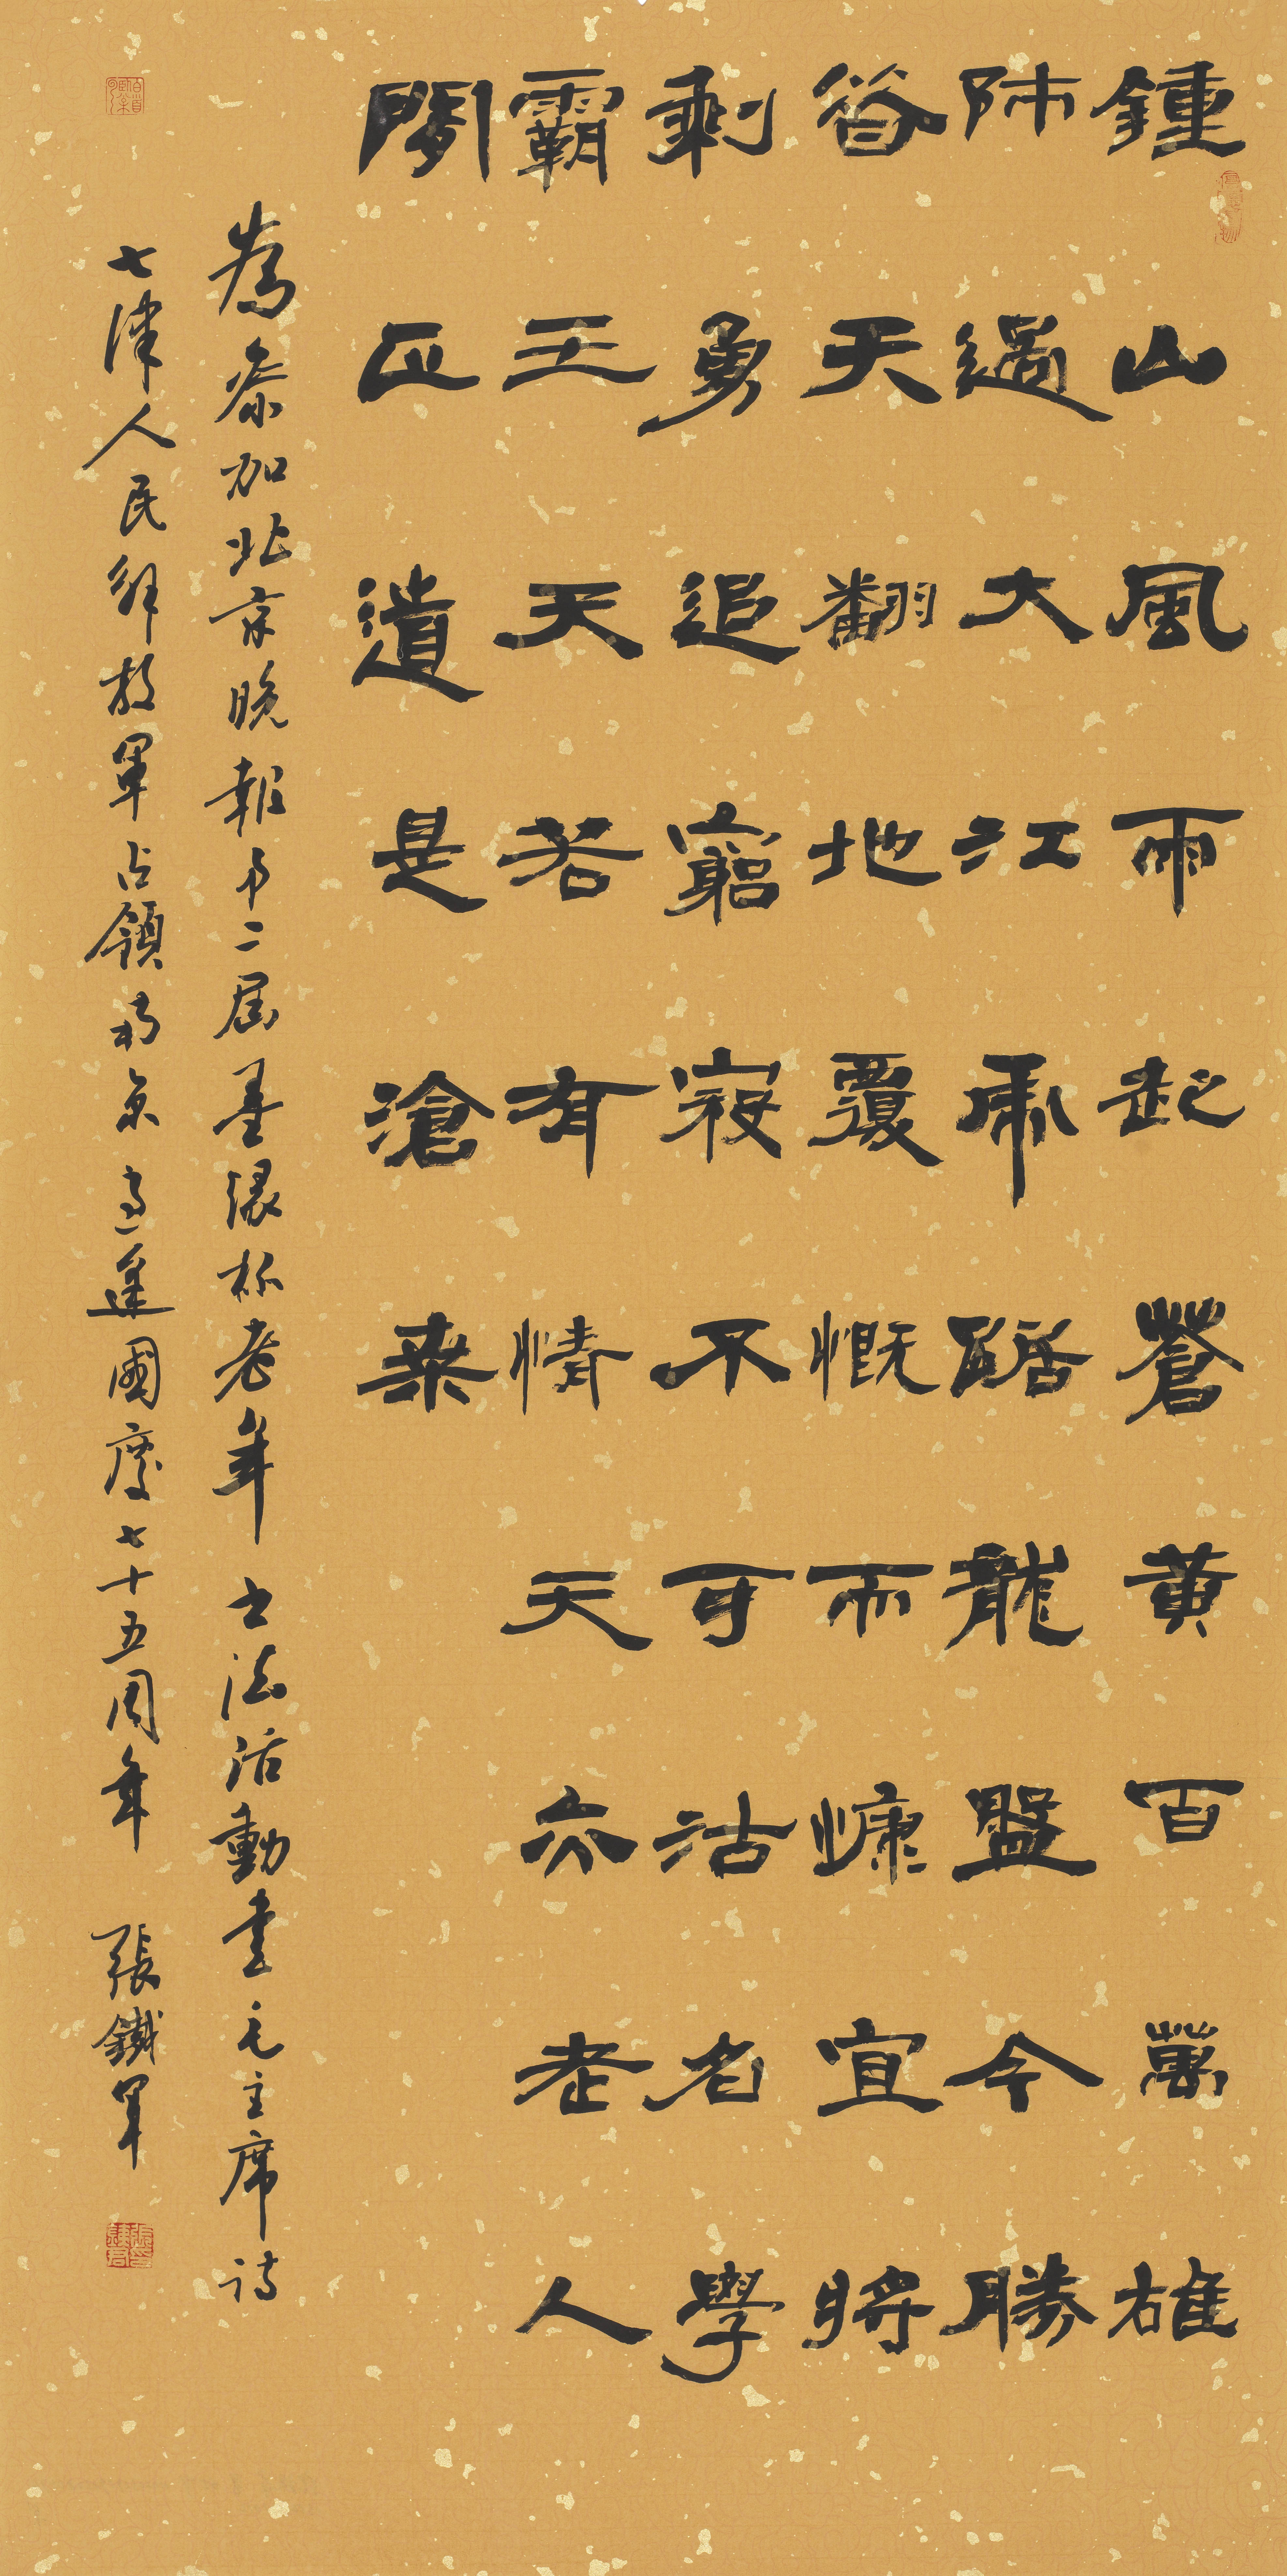 鍾山風雨起蒼黃百萬雄
師過大江虎踞龍盤今勝
昔天翻地覆慨而慷宜將
剩勇追窮寇不可沽名學
霸王天若有情天亦老人
間正道是滄桑
為参加北京晚報第二届墨緣杯老年书法活動書毛主席詩
七律人民解放軍占領南京適逢國慶七十五周年 張鐵軍